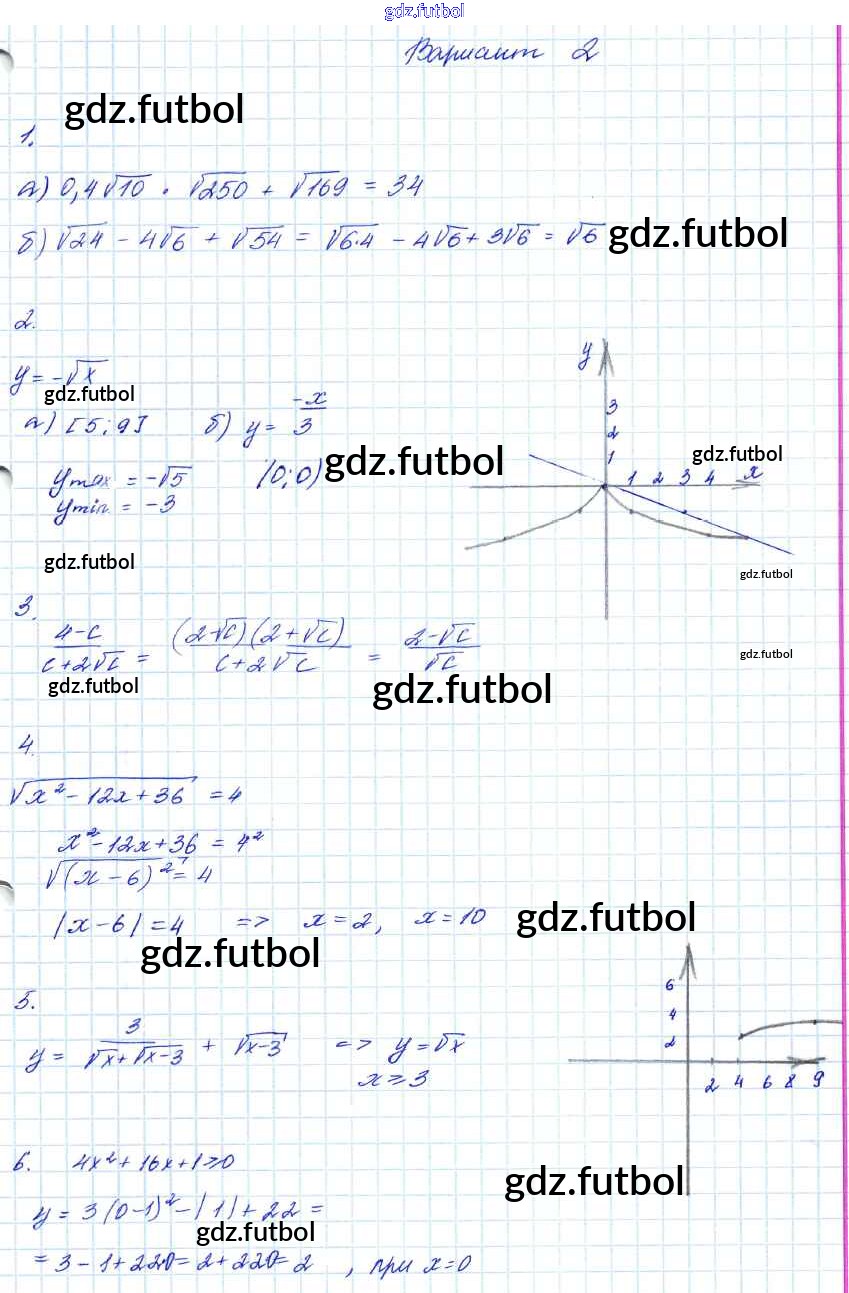 gdz.futbol
Вариант 2
gdz.futbol
1.
а) 0,4√10 · √250 + √169 = 34
б) √24 - 4√6 + √54 = √6·4 - 4√6 + 3√6 = √6
gdz.futbol
2.
y = -√x
gdz.futbol
а) [5; 9] б) y = -x/3
ymax = -√5 (0; 0)
ymin = -3
gdz.futbol
y
3
2
1
1 2 3 4 x
gdz.futbol
gdz.futbol
gdz.futbol
3.
4-c/c+2√c = (2-√c)(2+√c)/c+2√c = 2-√c/√c
gdz.futbol
gdz.futbol
gdz.futbol
4.
√x²-12x+36 = 4
x²-12x+36 = 4²
√(x-6)² = 4
|x-6| = 4 => x = 2, x = 10
gdz.futbol
gdz.futbol
5.
y = 3/√x+√x-3 + √x-3 => y = √x
x ≥ 3
6
4
2
2 4 6 8 9
6. 4x²+16x+1≥0
gdz.futbol
y = 3(0-1)²-|1|+22 =
gdz.futbol
= 3-1+220=2+220=2, при x=0